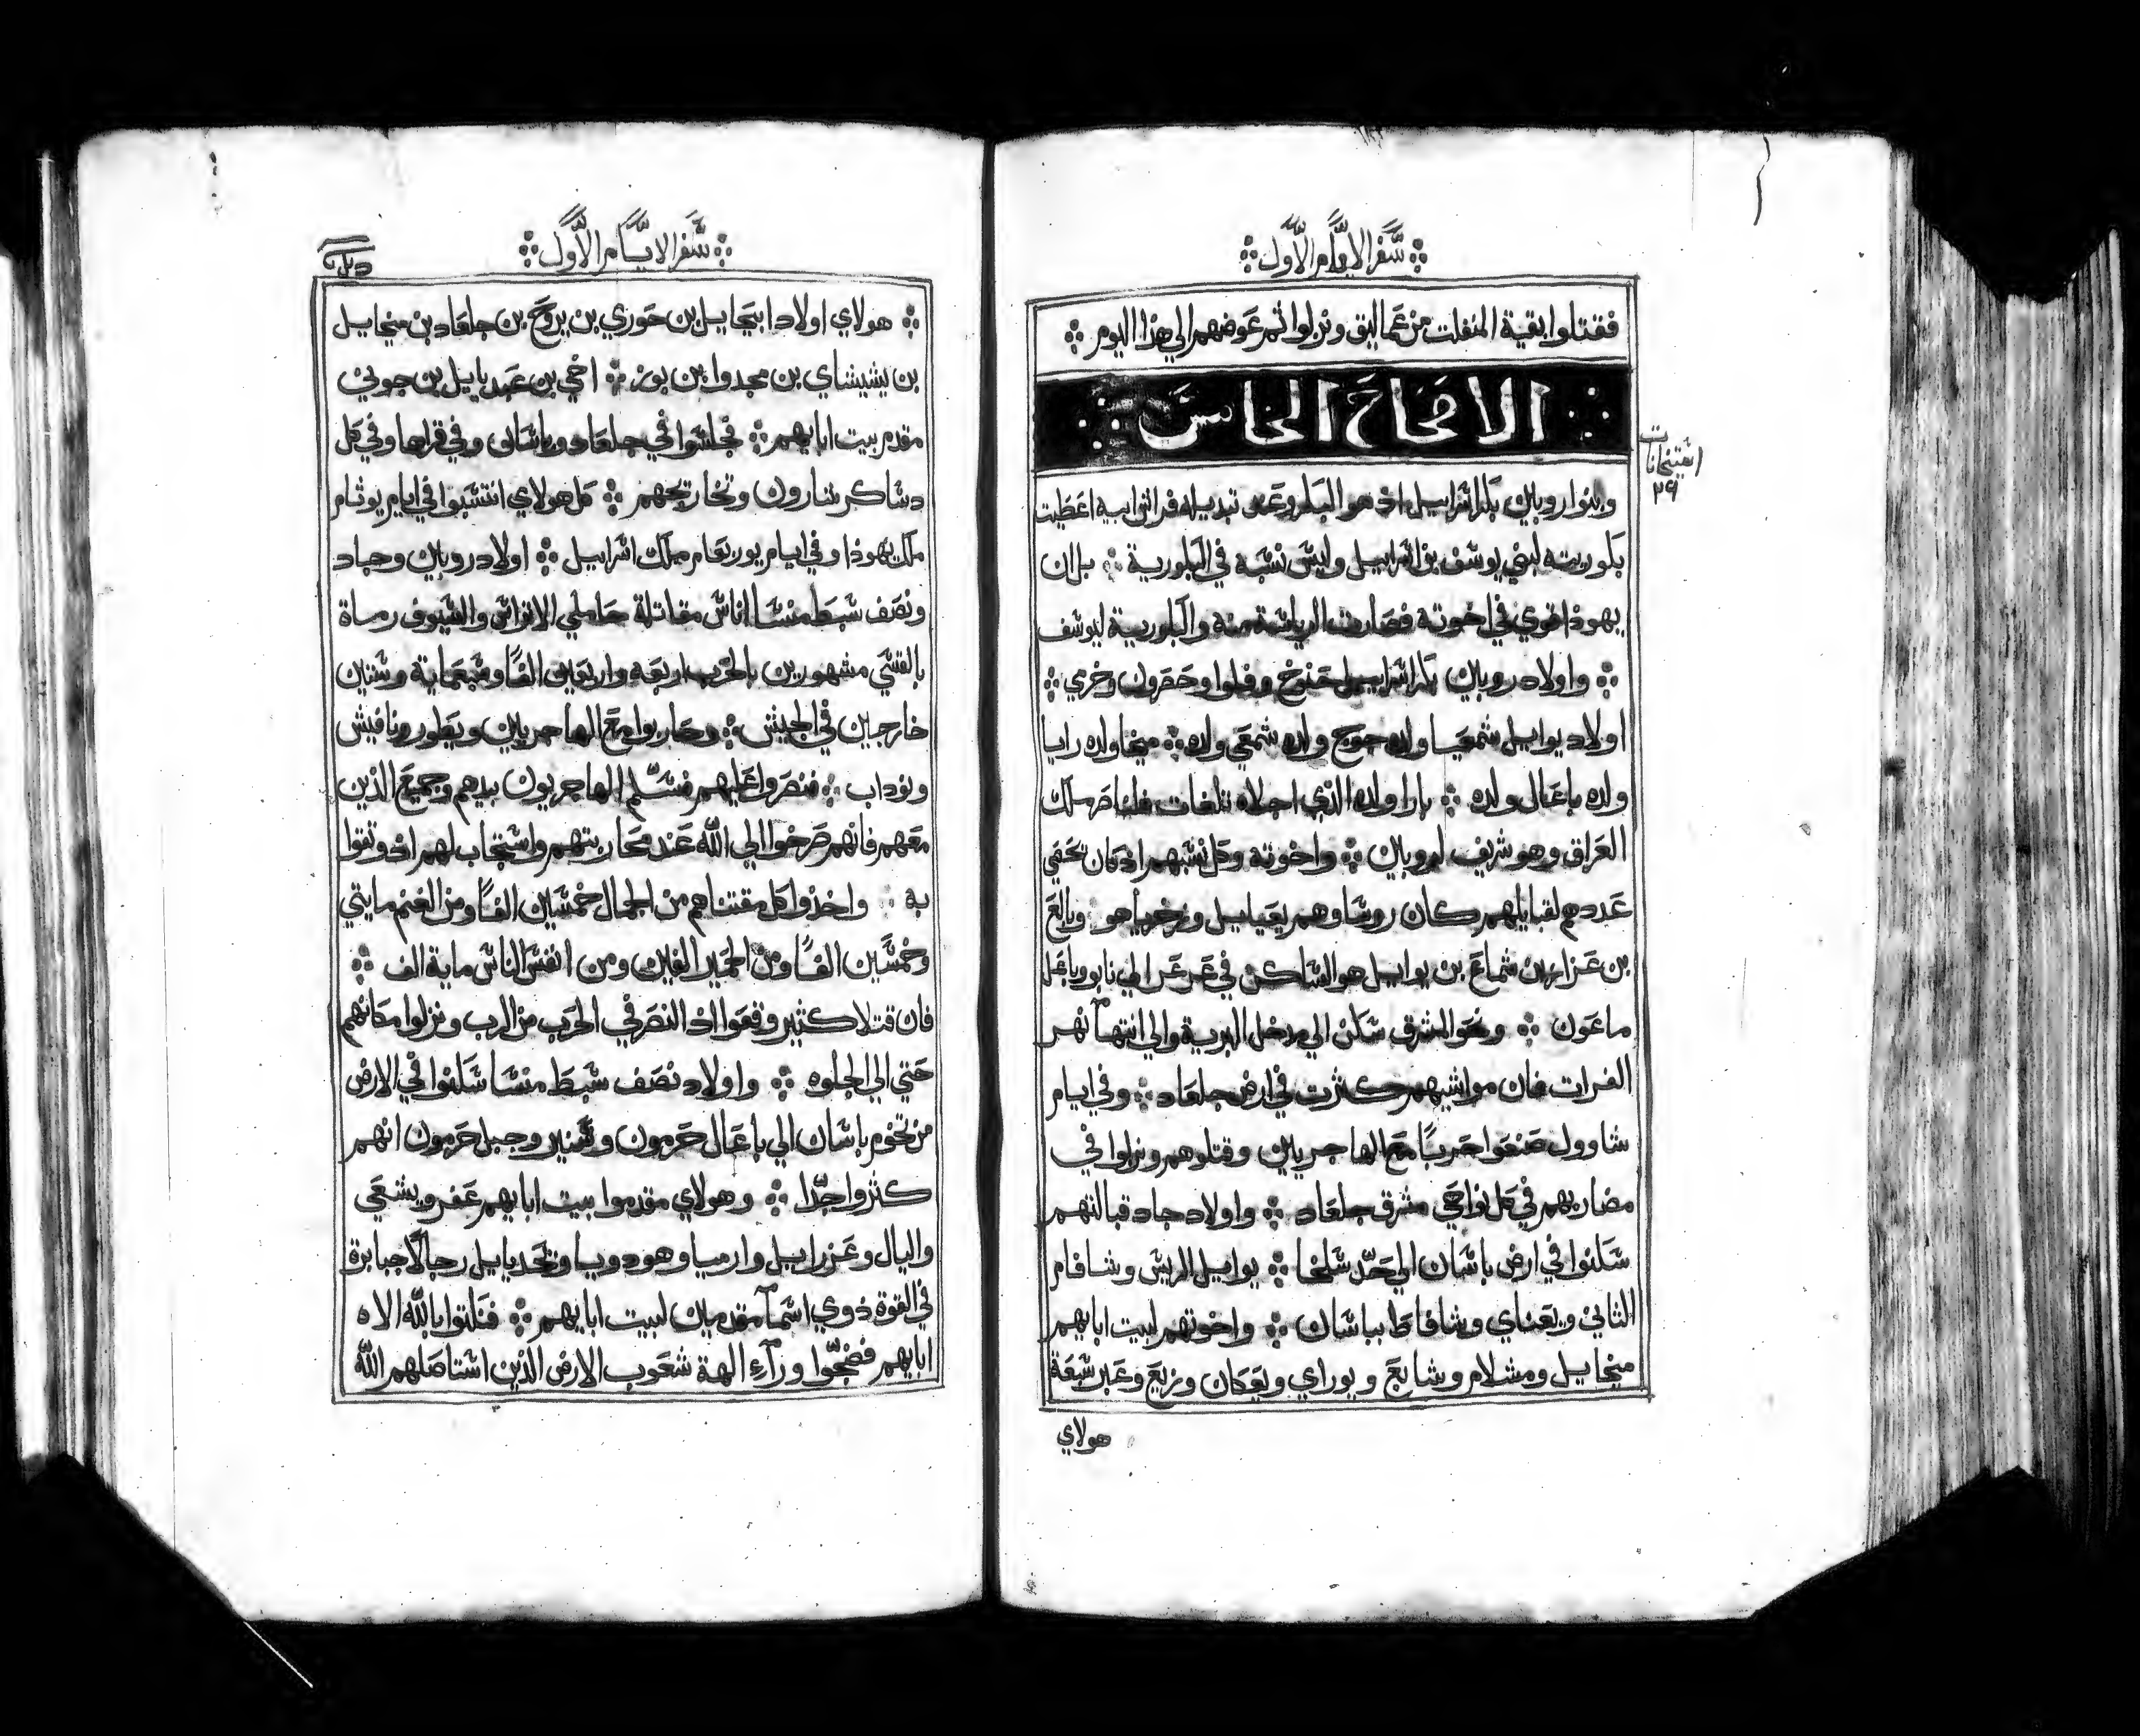 سفر الايام الاول
فقتلوا بقية المنفلت من عماليق ونزلوا ثم عوضهم الي هذا اليوم
الاصحاح الخامس
وبنوا روبين بكر اسراييل اذ هو البكر وعند تبديله فراش ابيه اعطيت
بكوريته لبني يوسف بن اسراييل وليس نسبه في البكورية بل ان
يهوذا قوي في اخوته فصارت الرياسة منه والبكورية ليوسف
واولاد روبين بكر اسراييل حنوخ وفلوا وحصرون وخري
اولاد يواييل شمعيا ولده جوج ولده شمعي ولده ميخا ولده رايا
ولده باعال ولده بارا ولده الذي اجلاه تلغات فلناصر ملك
العراق وهو شريف لروبين واخوته وكل نسبهم اذ كان تحقي
عددهم لقبايلهم كان روسا وهم يعياييل وزخرياهو وبالع
بن عزاز بن شماع بن يواييل هو الساكن في عرعر الي نابو وباعل
ماعون ونحو المشرق سكن الي مدخل البرية والي انتهآ نهر
الفرات فان مواشيهم كثرت في ارض جلعاد وفي ايام
شاوول صنعوا حربًا مع الهاجريين وقتلوهم ونزلوا في
مضاربهم في كل نواحي مشرق جلعاد واولاد جاد قبالتهم
سكنوا في ارض باشان الي حد سلخا يواييل الريس وشافام
الثاني ويعناي وشافاط بباشان واخوتهم لبيت ابايهم
ميخاييل ومشلام وشابع ويوراي ويعكان وزيع وعبر سبعة
هولاي
سفر الايام الاول
هولاي اولاد ابيحاييل بن حوري بن يروح بن جلعاد بن ميخاييل
بن يشيشاي بن محدوا بن بوز اخي بن عبدياييل بن جوني
مقدم بيت ابايهم فجلسوا في جلعاد وباشان وفي قراها وفي كل
دساكر شارون وتخارجهم كل هولاي انتسبوا في ايام يوثام
ملك يهوذا وفي ايام يوربعام ملك اسراييل اولاد روبين وجاد
ونصف سبط منشا اناس مقاتلة حاملي الاتراس والسيوف رماة
بالقسي مشهورين بالحرب اربعه واربعين الفًا وسبعماية وستين
خارجين في الجيش وحاربوا مع الهاجريين ويطور ونافيش
ونوداب فنصروا عليهم فسلم الهاجريون بيدهم وجميع الذين
معهم فانهم صرخوا الي الله عند محاربتهم واستجاب لهم اذ وثقوا
به واخذوا كل مقتناهم من الجمال خمسين الفًا ومن الغنم مايتي
وخمسين الفًا ومن الحمير الفين ومن انفس الناس ماية الف
فان قتلا كثير وقعوا اذ النصر في الحرب من الرب ونزلوا مكانهم
حتي الي الجلوه واولاد نصف سبط منشا سكنوا في الارض
من تخوم باشان الي باعال حرمون وسنير وجبل حرمون انهم
كثروا جدًا وهولاي مقدموا بيت ابايهم عفر ويشعي
واليال وعزراييل وارميا وهودويا ونحدياييل رجالًا جبابرة
في القوة ذوي اسمآ مقدمين لبيت ابايهم فنكثوا بالله الاه
ابايهم فضجوا ورآء الهة شعوب الارض الذين استاصلهم الله